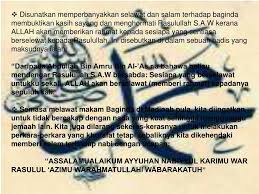 ❖ Disunatkan memperbanyakkan selawat dan salam terhadap baginda
membuktikan kasih sayang dan menghormati Rasulullah S.A.W kerana
ALLAH akan memberikan rahmat kepada sesiapa yang
berselawat kepada Rasulullah. Ini disebutkan di dalam sebuah hadis yang
maksudnya
"Daripada Abdullah Bin Amru Bin Al-'As ra bahawa beliau
mendengar Rasulullah S.A.W bersabda: Sesiapa yang berselawat
untukku sekali ALLAH akan berselawat (memberi rahmat) kepadanya
sepuluh
❖ Semasa melawat makam Baginda di Madinah pula, kita diingatkan
untuk tidak bercakap dengan nada yang kuat sehingga mengganggu
jemaah lain. Kita juga dilarang sekeras-kerasnya untuk melakukan
perkara-perkara yang khurafat tetapi sebaliknya kita dikehendaki
memberi salam terhadap nabi dengan ucapan
"ASSALAMUALAIKUM AYYUHAN NABIYYUL KARIMU WAR
RASULUL 'AZIMU WARAHMATULLAHI WABARAKATUH"